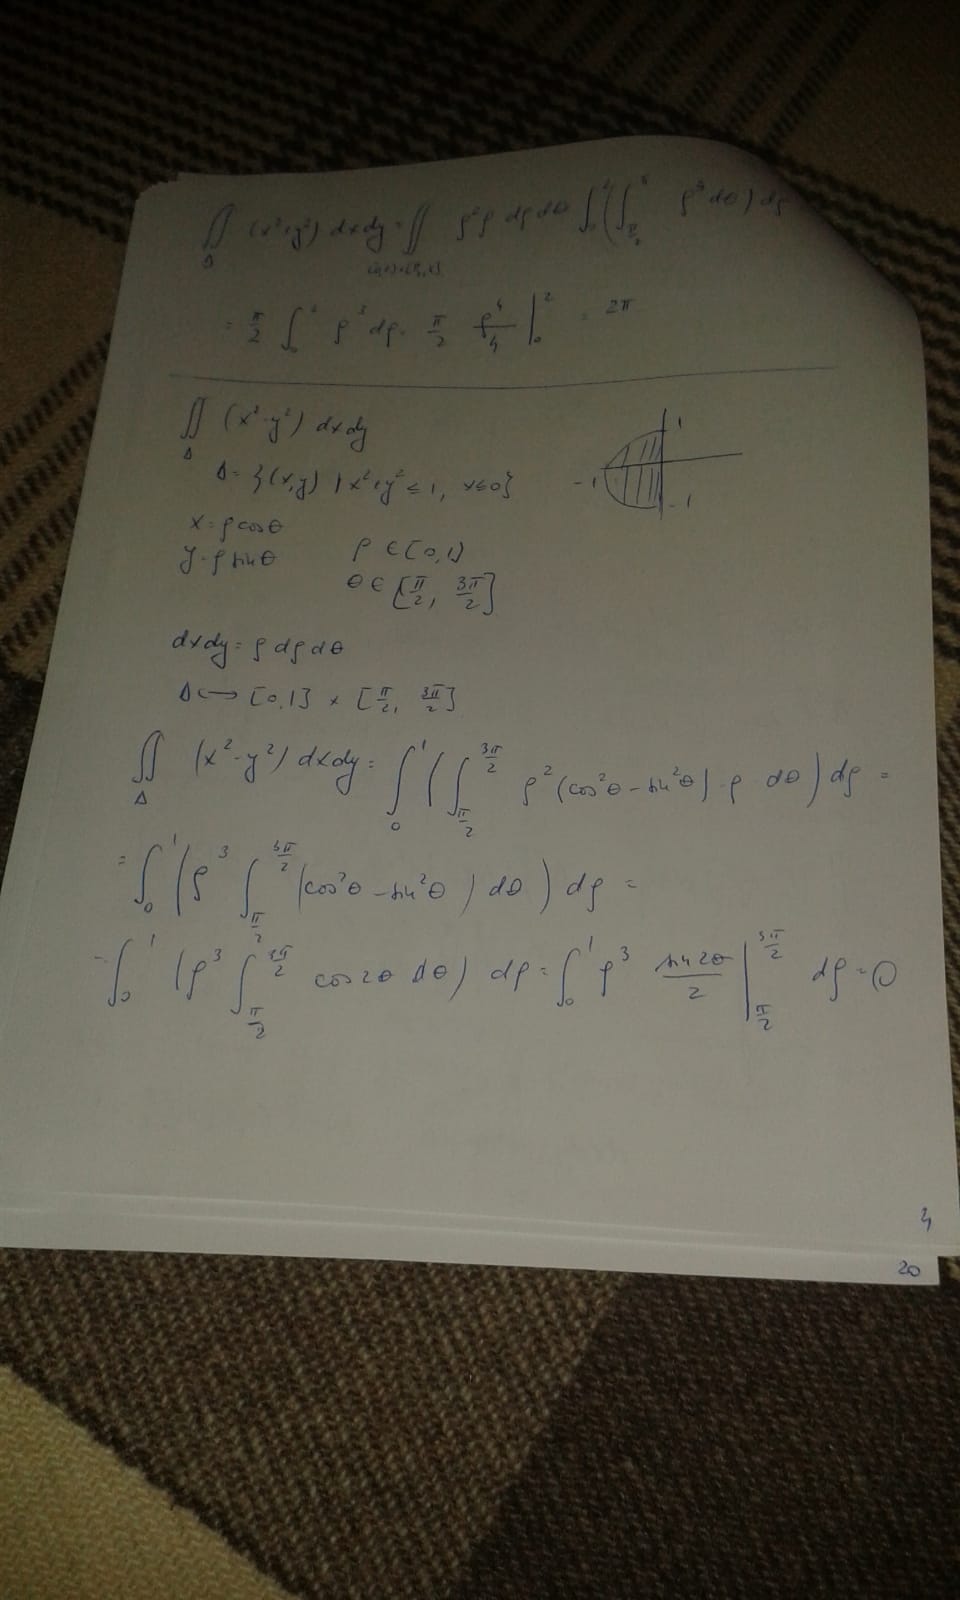 ∬_Δ (x²+y²) dxdy = ∬ ρ²ρ dρ dθ ∫₀² (∫_{π/2}^{π} ρ³ dθ) dρ
= π/2 ∫₀² ρ³ dρ = π/2 ρ⁴/4 |₀² = 2π
∬_Δ (x²-y²) dxdy
Δ = {(x,y) | x²+y² ≤ 1, x≤0}
1
-1
-1
x=ρcosθ
y=ρsinθ
ρ ∈ [0,1)
θ ∈ [π/2, 3π/2]
dxdy = ρ dρ dθ
Δ ↔ [0,1] × [π/2, 3π/2]
∬_Δ (x²-y²) dxdy = ∫₀¹ (∫_{π/2}^{3π/2} ρ²(cos²θ - sin²θ) ρ dθ) dρ =
= ∫₀¹ (ρ³ ∫_{π/2}^{3π/2} (cos²θ - sin²θ) dθ) dρ =
= ∫₀¹ (ρ³ ∫_{π/2}^{3π/2} cos2θ dθ) dρ = ∫₀¹ ρ³ sin2θ/2 |_{π/2}^{3π/2} dρ = 0
20